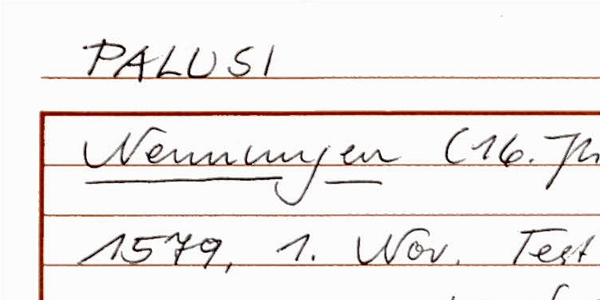 PALUSI
Nennungen (16. Jh
1579, 1. Nov. Test